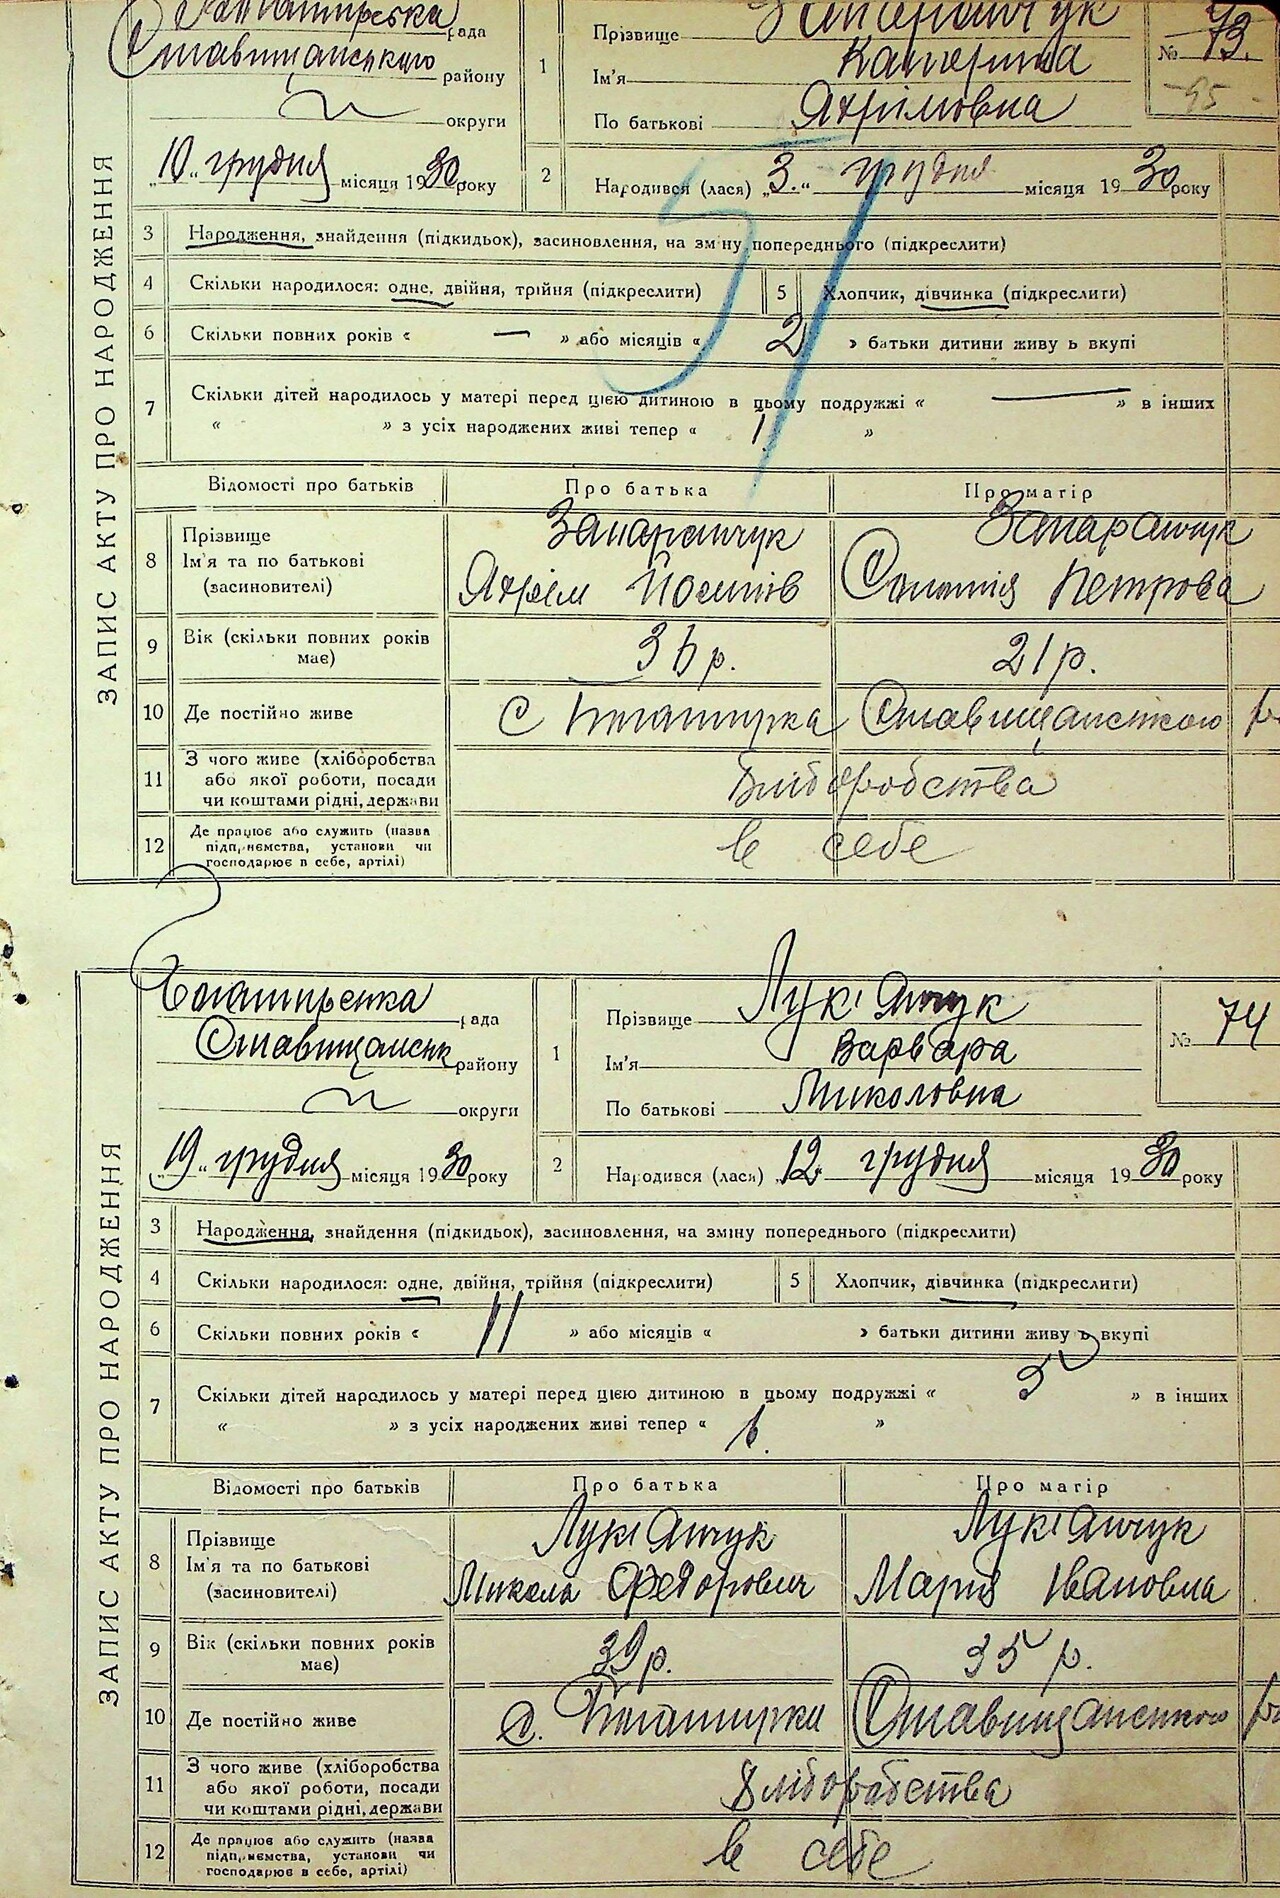 рада
Ставищанського району
округи
„10“ грудня місяця 1930 року
1
Прізвище
Ім'я Катерина
По батькові Яхрімовна
№ 73.
95
2
Народився (лася) „3.“ грудня місяця 1930 року
ЗАПИС АКТУ ПРО НАРОДЖЕННЯ
3 Народження, знайдення (підкидьок), засиновлення, на зміну попереднього (підкреслити)
4 Скільки народилося: одне, двійня, трійня (підкреслити) 5 Хлопчик, дівчинка (підкреслити)
6 Скільки повних років « — » або місяців « 2 » батьки дитини живу ь вкупі
7 Скільки дітей народилось у матері перед цією дитиною в цьому подружжі « — » в інших
« » з усіх народжених живі тепер « 1 »
Відомості про батьків Про батька Про матір
8 Прізвище
Ім'я та по батькові
(засиновителі)
Яхрім Йосипів
Петрова
9 Вік (скільки повних років має) 36 р. 21 р.
10 Де постійно живе с Ставищанського
11 З чого живе (хліборобства
або якої роботи, посади
чи коштами рідні, держави
Хліборобства
12 Де працює або служить (назва
підприємства, установи чи
господарює в себе, артілі)
в себе
рада
Ставищанськ району
округи
„19“ грудня місяця 1930 року
1
Прізвище Лукіянчук
Ім'я Варвара
По батькові Миколовна
№ 74
2
Народився (лася) „12“ грудня місяця 1930 року
ЗАПИС АКТУ ПРО НАРОДЖЕННЯ
3 Народження, знайдення (підкидьок), засиновлення, на зміну попереднього (підкреслити)
4 Скільки народилося: одне, двійня, трійня (підкреслити) 5 Хлопчик, дівчинка (підкреслити)
6 Скільки повних років « 11 » або місяців « » батьки дитини живу ь вкупі
7 Скільки дітей народилось у матері перед цією дитиною в цьому подружжі « 5 » в інших
« » з усіх народжених живі тепер « 6. »
Відомості про батьків Про батька Про матір
8 Прізвище
Ім'я та по батькові
(засиновителі)
Лукіянчук Лукіянчук
Микола Федорович Марія Івановна
9 Вік (скільки повних років має) 39 р. 35 р.
10 Де постійно живе с. Ставищанського
11 З чого живе (хліборобства
або якої роботи, посади
чи коштами рідні, держави
Хліборобства
12 Де працює або служить (назва
підприємства, установи чи
господарює в себе, артілі)
в себе